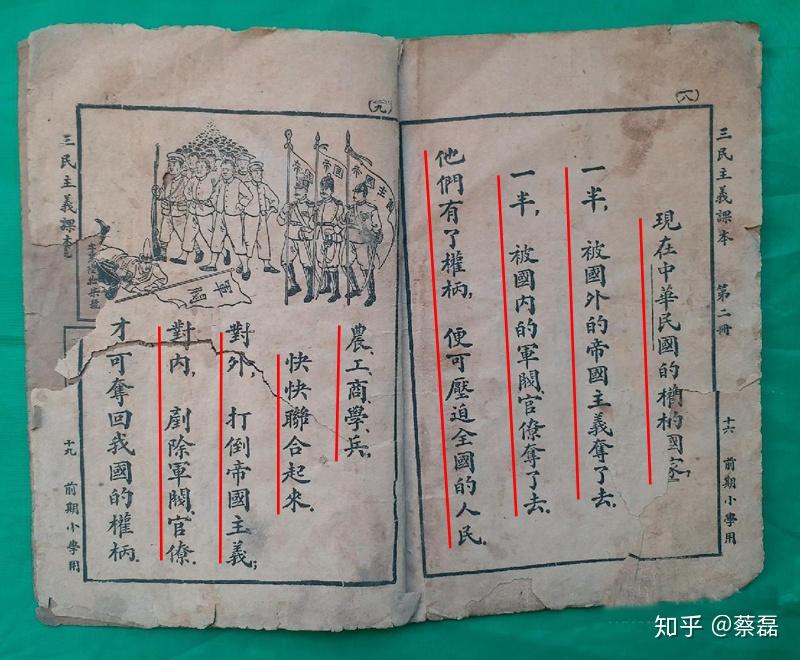 三民主義課本 第二冊 十六 前期小學用
(八)
現在中華民國的權柄
一半,被國外的帝國主義奪了去.
一半,被國內的軍閥官僚奪了去.
他們有了權柄,便可壓迫全國的人民.
(九)
帝國主義
軍閥
農、工、商、學、兵,
快快聯合起來.
對外,打倒帝國主義;
對內,剷除軍閥、官僚.
才可奪回我國的權柄.
三民主義課本
十九 前期小學用
知乎 @蔡磊